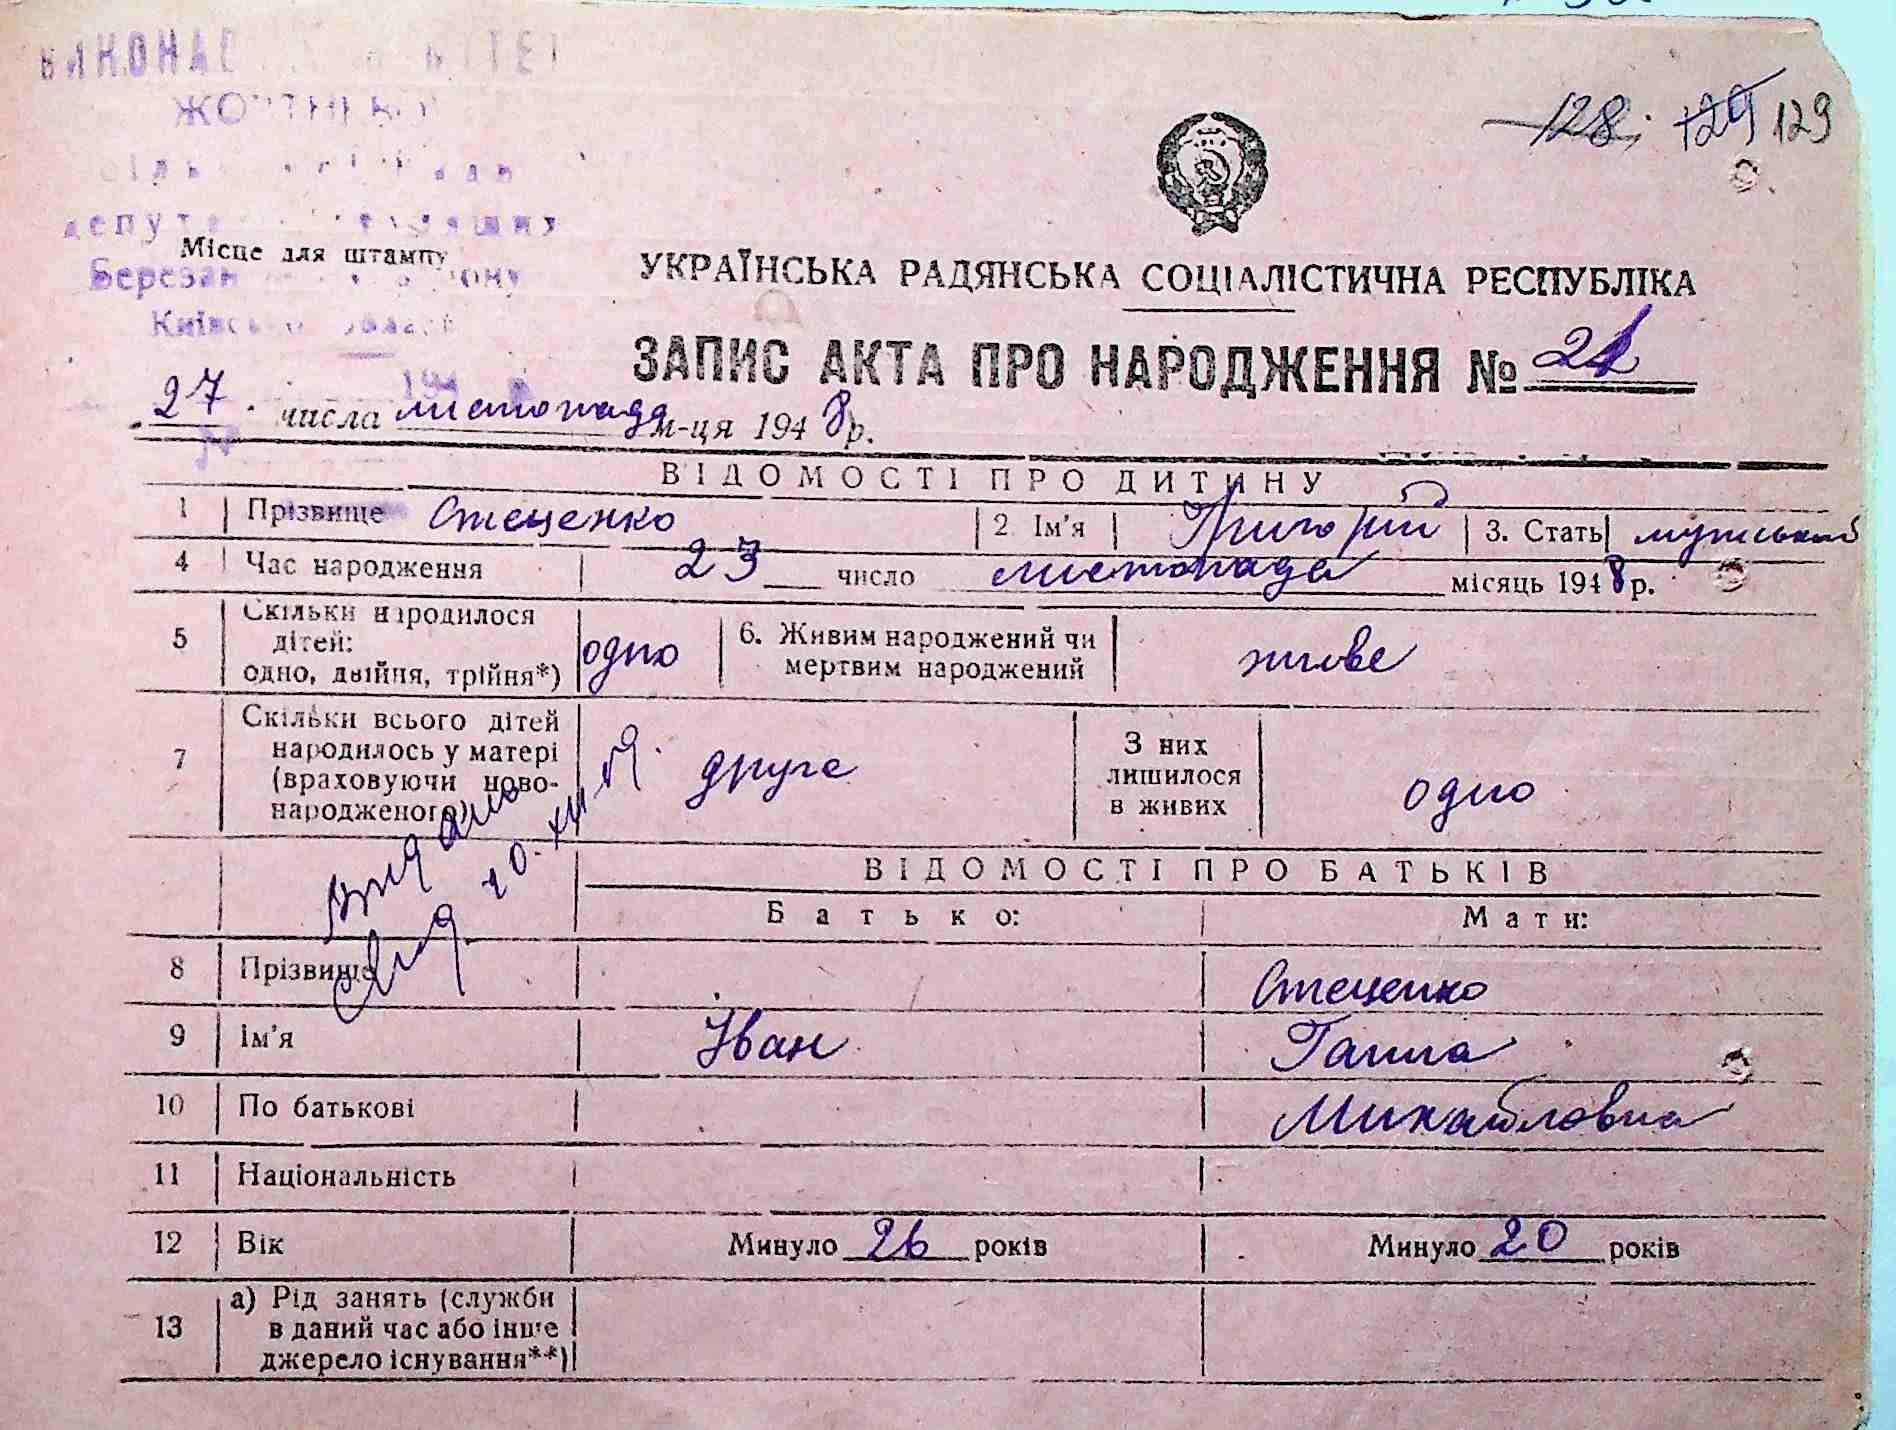 128; 129 129
Місце для штампу
Київської області
УКРАЇНСЬКА РАДЯНСЬКА СОЦІАЛІСТИЧНА РЕСПУБЛІКА
ЗАПИС АКТА ПРО НАРОДЖЕННЯ № 21
27 числа листопада м-ця 1948 р.
ВІДОМОСТІ ПРО ДИТИНУ
1 Прізвище Стеценко 2. Ім'я Григорій 3. Стать мужський
4 Час народження 23 число листопада місяць 1948 р.
5 Скільки народилося дітей: одно, двійня, трійня*) одно 6. Живим народжений чи мертвим народжений живе
7 Скільки всього дітей народилось у матері (враховуючи новонародженого) друге З них лишилося в живих одно
ВІДОМОСТІ ПРО БАТЬКІВ
Батько: Мати:
8 Прізвище Стеценко
9 Ім'я Іван Ганна
10 По батькові Михайловна
11 Національність
12 Вік Минуло 26 років Минуло 20 років
13 а) Рід занять (служби
в даний час або інше
джерело існування**)